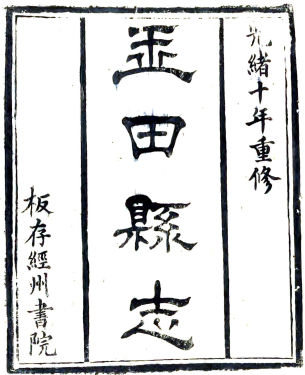 光緒十年重修
玉田縣志
板存經州書院